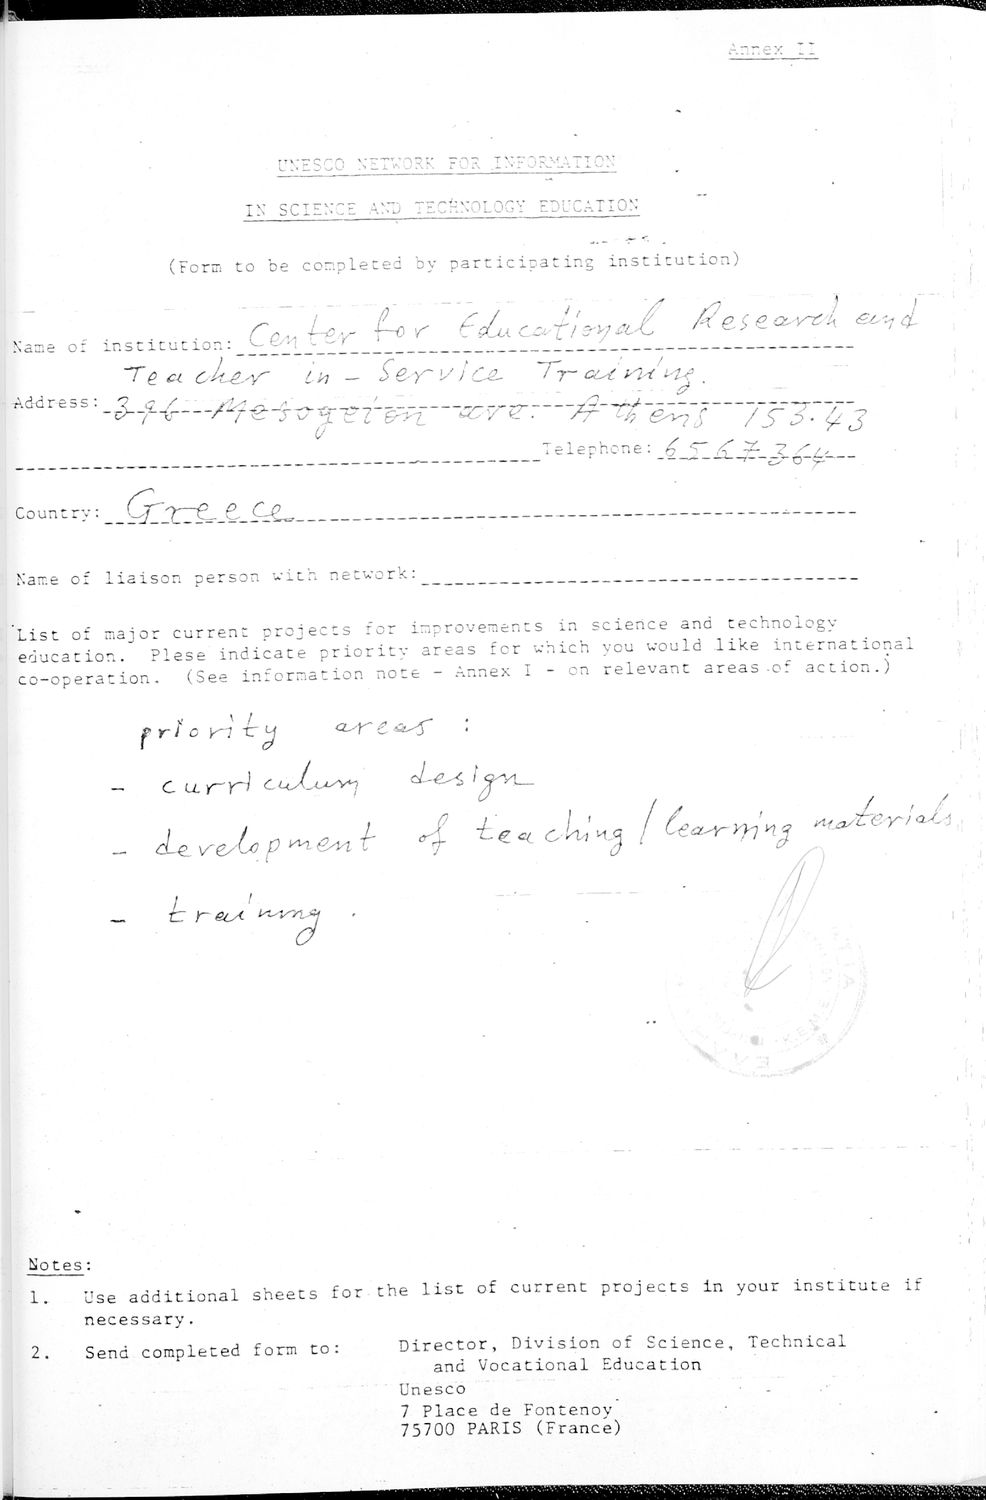 Annex II
UNESCO NETWORK FOR INFORMATION
IN SCIENCE AND TECHNOLOGY EDUCATION
(Form to be completed by participating institution)
Name of institution: Center for Educational Research and
Teacher in - Service Training.
Address: 396 Mesogeion ave. Athens 153.43
Telephone: 6567364
Country: Greece
Name of liaison person with network:
List of major current projects for improvements in science and technology
education. Plese indicate priority areas for which you would like international
co-operation. (See information note - Annex I - on relevant areas of action.)
priority areas :
- curriculum design
- development of teaching / learning materials
- training .
Notes:
1. Use additional sheets for the list of current projects in your institute if
necessary.
2. Send completed form to: Director, Division of Science, Technical
and Vocational Education
Unesco
7 Place de Fontenoy
75700 PARIS (France)